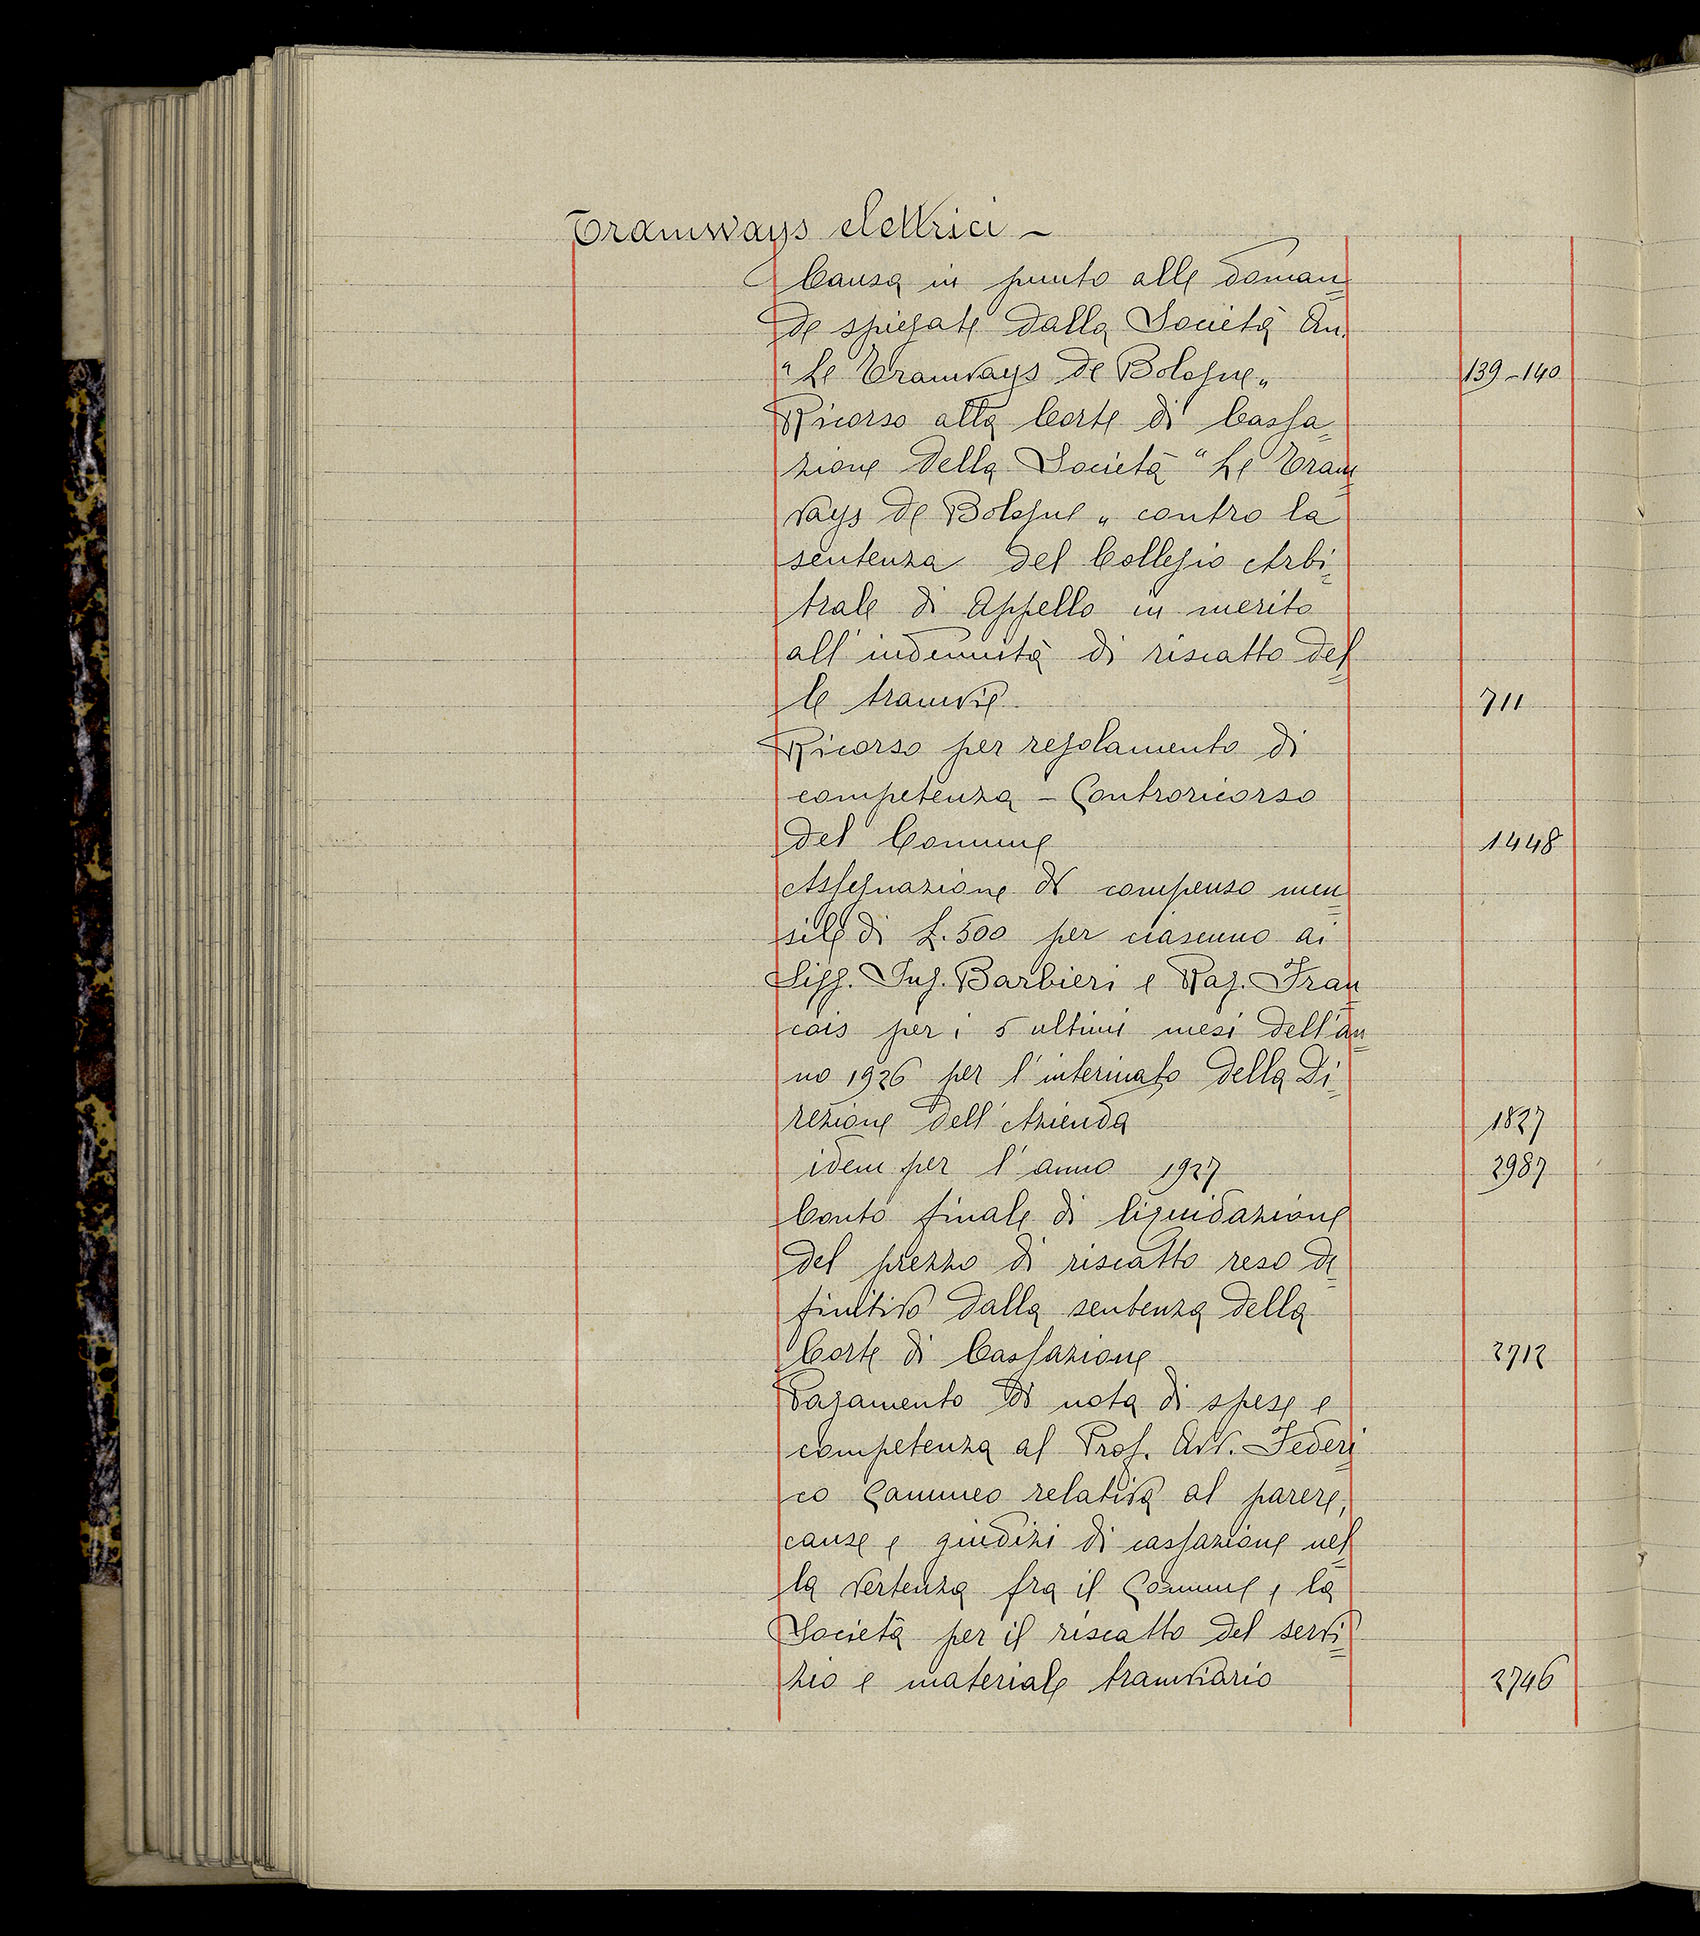 Tramways elettrici -
Causa in punto alle doman=
de spiegate dalla Società An.
"Le Tramways de Bologne„ 139-140
Ricorso alla Corte di Cassa=
zione della Società "Le Tram=
ways de Bologne„ contro la
sentenza del Collegio Arbi=
trale di Appello in merito
all'indennità di riscatto del=
le tramvie 711
Ricorso per regolamento di
competenza - Controricorso
del Comune 1448
Assegnazione di compenso men=
sile di L. 500 per ciascuno ai
Sigg. Ing. Barbieri e Rag. Fran=
cois per i 5 ultimi mesi dell'an=
no 1926 per l'interinato della Di=
rezione dell'Azienda 1827
idem per l'anno 1927 2987
Conto finale di liquidazione
del prezzo di riscatto reso de=
finitivo dalla sentenza della
Corte di Cassazione 2712
Pagamento di nota di spese e
competenza al Prof. Avv. Federi=
co Cammeo relativa al parere,
cause e giudizi di cassazione nel=
la vertenza fra il Comune e la
Società per il riscatto del servi=
zio e materiale tramviario 2746